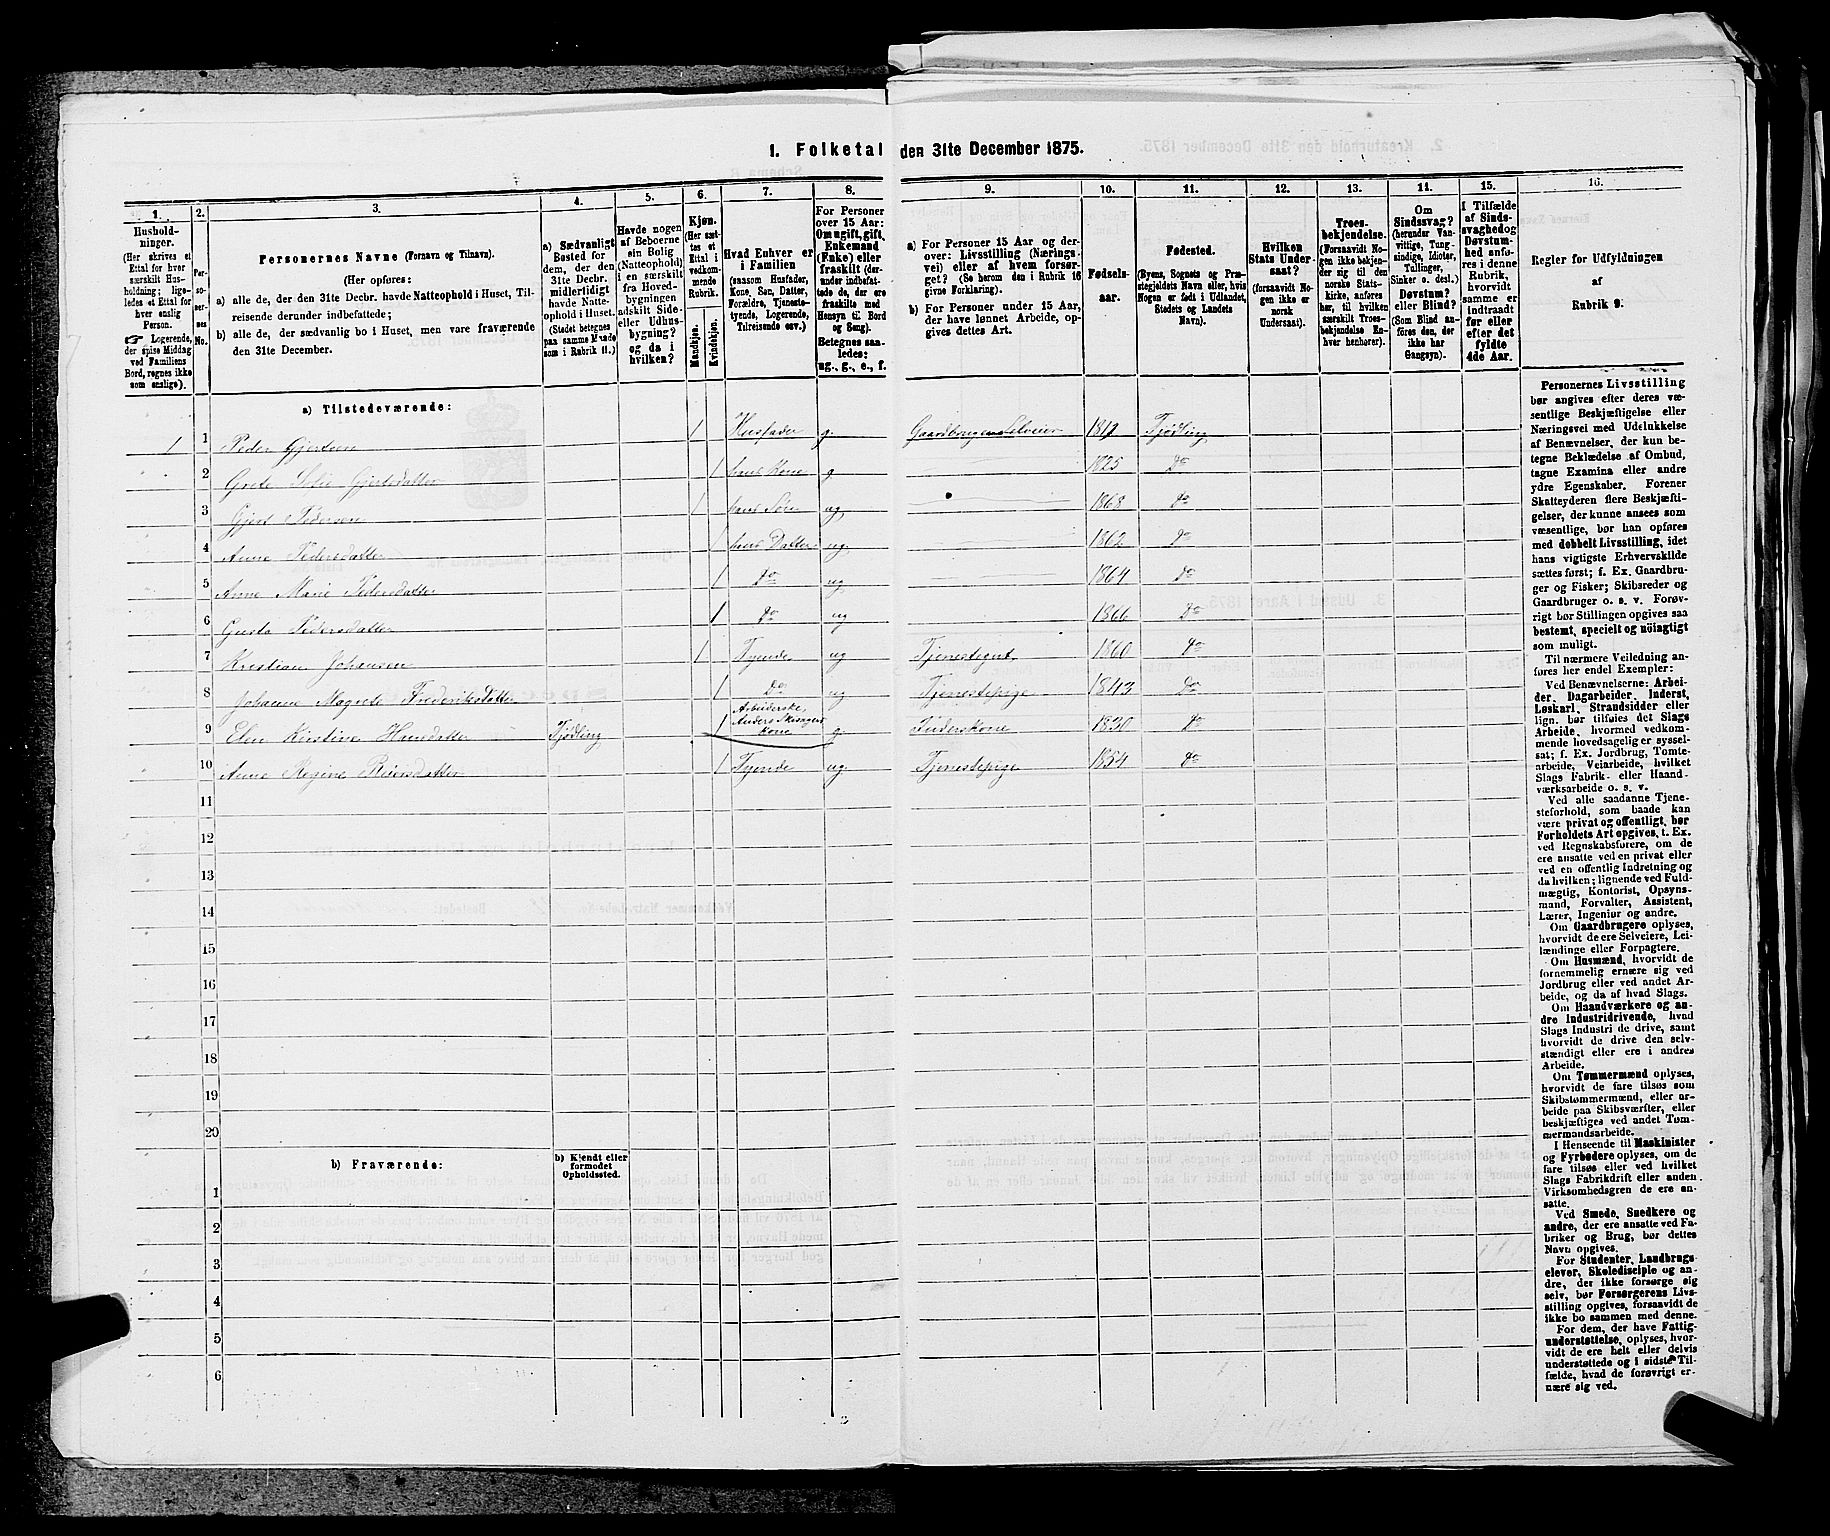 1. Folketal den 31te December 1875.
1. 2. 3. 4. 5. 6. 7. 8. 9. 10. 11. 12. 13. 14. 15. 16.
Hushold-
ninger.
(Her skrives et
Ettal for hver
særskilt Hus-
holdning; lige-
ledes et Ettal for
hver enslig
Person.
☞ Logerende,
der spise Middag
ved Familiens
Bord, regnes ikke
som enslige).
Per-
so-
ner-
nes
No.
Personernes Navne (Fornavn og Tilnavn).
(Her opføres:
a) alle de, der den 31te Decbr. havde Natteophold i Huset, Til-
reisende derunder indbefattede;
b) alle de, der sædvanlig bo i Huset, men vare fraværende
den 31te December.
a) Sædvanligt
Bosted for
dem, der den
31te Decbr.
midlertidigt
havde Natte-
ophold i Huset.
(Stedet betegnes
paa samme Maade
som i Rubrik 11.)
Havde nogen
af Beboerne
sin Bolig
(Natteophold)
i en særskilt
fra Hoved-
bygningen
adskilt Side-
eller Udhus-
bygning?
og da i
hvilken?
Kjøn.
(Her sæt-
tes et
Ettal i
vedkom-
mende
Rubrik.
Mandkjøn.
Kvindekjøn.
Hvad Enhver er
i Familien
(saasom Husfader,
Kone, Søn, Datter,
Forældre, Tjeneste-
tyende, Logerende,
Tilreisende osv.)
For Personer
over 15 Aar:
Om ugift, gift,
Enkemand
(Enke) eller
fraskilt (der-
under indbefat-
tede de, der ere
fraskilte med
Hensyn til Bord
og Seng).
Betegnes saa-
ledes:
ug., g., e., f.
a) For Personer 15 Aar og der-
over: Livsstilling (Nærings-
vei) eller af hvem forsør-
get? (Se herom den i Rubrik 16
givne Forklaring).
b) For Personer under 15 Aar,
der have lønnet Arbeide, op-
gives dettes Art.
Fødsels-
aar.
Fødested.
(Byens, Sognets og Præ-
stegjeldets Navn eller, hvis
Nogen er født i Udlandet,
Stedets og Landets
Navn).
Hvilken
Stats Under-
saat?
(forsaavidt No-
gen ikke er
norsk
Undersaat).
Troes-
bekjendelse.
(Forsaavidt No-
gen ikke bekjen-
der sig til den
norske Stats-
kirke, anføres
her, til hvilken
særskilt Troes-
bekjendelse En-
hver henhører).
Om
Sindssvag?
(herunder Van-
vittige, Tung-
sindige, Idioter,
Tullinger,
Sinker o. desl.)
Døvstum?
eller Blind?
(Som Blind an-
føres den, der
ikke har
Gangsyn).
I Tilfælde
af Sinds-
svaghed og
Døvstum-
hed anfø-
res i denne
Rubrik,
hvorvidt
samme er
indtraadt
før eller
efter det
fyldte
4de Aar.
Regler for Udfyldningen
af
Rubrik 9.
a) Tilstedeværende:
1 1 Peder Gjertsen 1 Husfader g. Gaardbruger Selveier 1819 Tjødling
2 Grete Sofie Gjertsdatter 1 hans Kone g 1825 Do
3 Gjert Pedersen 1 hans Søn ug. 1868 do
4 Anne Pedersdatter 1 hans Datter ug. 1862 do
5 Anne Marie Pedersdatter 1 Do ug 1864 Do
6 Gusta Pedersdatter 1 do ug 1866 Do
7 Kristian Johansen 1 Tyende ug Tjenestegut 1860 do
8 Johanne Magrete Frederiksdatter 1 Do ug Tjenestepige 1843 Do
9 Elen Kirstine Hansdatter Tjødling 1 Arbeiderske, Anders kone g. Inderskone 1830 do
10 Anne Regine Reiersdatter 1 Tyende ug Tjenestepige 1854 do
11
12
13
14
15
16
17
18
19
20
b) Fraværende:
b) Kjendt eller
formodet
Opholdssted.
1
2
3
4
5
6
Personernes Livsstilling
bør angives efter deres væ-
sentlige Beskjæftigelse eller
Næringsvei med Udelukkelse
af Benævnelser, der kun be-
tegne Beklædelse af Ombud,
tagne Examina eller andre
ydre Egenskaber. Forener
Skatteyderen flere Beskjæfti-
gelser, der kunne ansees som
væsentlige, bør han opføres
med dobbelt Livsstilling, idet
hans vigtigste Erhvervskilde
sættes først; f. Ex. Gaardbru-
ger og Fisker; Skibsreder og
Gaardbruger o. s. v. Forøv-
rigt bør Stillingen opgives saa
bestemt, specielt og nöiagtigt
som muligt.
Til nærmere Veiledning an-
føres her endel Exempler:
Ved Benævnelserne: Arbei-
der, Dagarbeider, Inderst,
Løskarl, Strandsidder eller
lign. bør tilføies det Slags
Arbeide, hvormed vedkom-
mende hovedsagelig er syssel-
sat; f. Ex. Jordbrug, Tomte-
arbeide, Veiarbeide, hvilket
Slags Fabrik- eller Haand-
værksarbeide o. s. v.
Ved alle saadanne Tjene-
steforhold, som baade kan
være privat og offentligt, bør
Forholdets Art opgives, t. Ex.
ved Regnskabsførere, om de
ere ansatte ved en privat eller
ved en offentlig Indretning og
da hvilken; lignende ved Fuld-
mægtig, Kontorist, Opsyns-
mand, Forvalter, Assistent,
Lærer, Ingeniør og andre.
Om Gaardbrugere oplyses,
hvorvidt de ere Selveiere, Lei-
lændinge eller Forpagtere.
Om Husmænd, hvorvidt de
fornemmelig ernære sig ved
Jordbrug eller ved andet Ar-
beide, og da af hvad Slags.
Om Haandværkere og an-
dre Industridrivende, hvad
Slags Industri de drive, samt
hvorvidt de drive den selv-
stændigt eller ere i andres
Arbeide.
Om Tømmermænd oplyses,
hvorvidt de fare tilsøs som
Skibstømmermænd, eller ar-
beide paa Skibsværfter, eller
beskjæftiges ved andet Tøm-
mermandsarbeide.
I Henseende til Maskinister
og Fyrbødere oplyses, om de
fare tilsøs eller ved hvilket
Slags Fabrikdrift eller anden
Virksomhedsgren de ere an-
satte.
Ved Smede, Snedkere og
andre, der ere ansatte ved Fa-
briker og Brug, bør dettes
Navn opgives.
For Studenter, Landbrugs-
elever, Skoledisciple og an-
dre, der ikke forsørge sig
selv, bør Forsørgerens Livs-
stilling opgives, forsaavidt de
ikke bo sammen med denne.
For dem, der have Fattig-
understøttelse, oplyses, hvor-
vidt de ere helt eller delvis
understøttede og i sidste Til-
fælde, hvad de forøvrigt er-
nære sig ved.